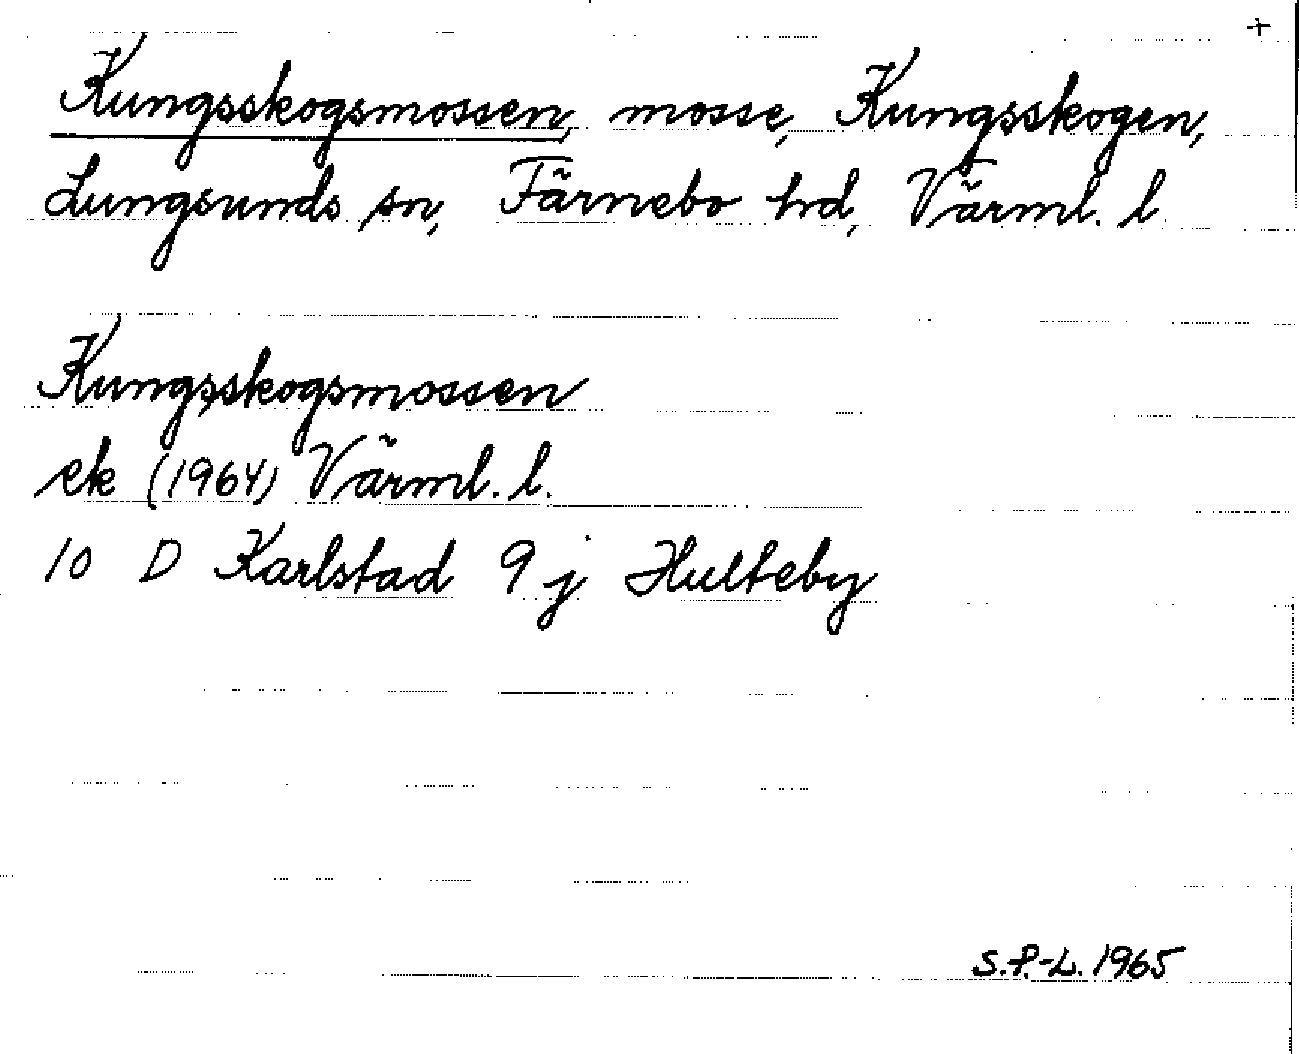 +
Kungsskogsmossen, mosse, Kungsskogen,
Lungsunds sn, Färnebo hd, Värml. l.
Kungsskogsmossen
ek (1964) Värml. l.
10 D Karlstad 9 j Hulteby
S.P.-L. 1965